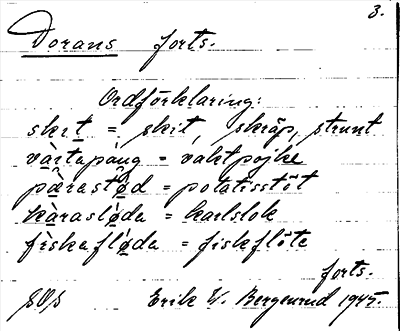 3.
Dorans forts.
Ordförklaring:
skrt = skit, skräp, strunt
vàrtapåug = vaktpojke
pärastöd = potatisstöt
kàraslọda = karlslok
fiskaflọda = fiskflöte
forts.
SOS Erik W. Bergenrud 1945.